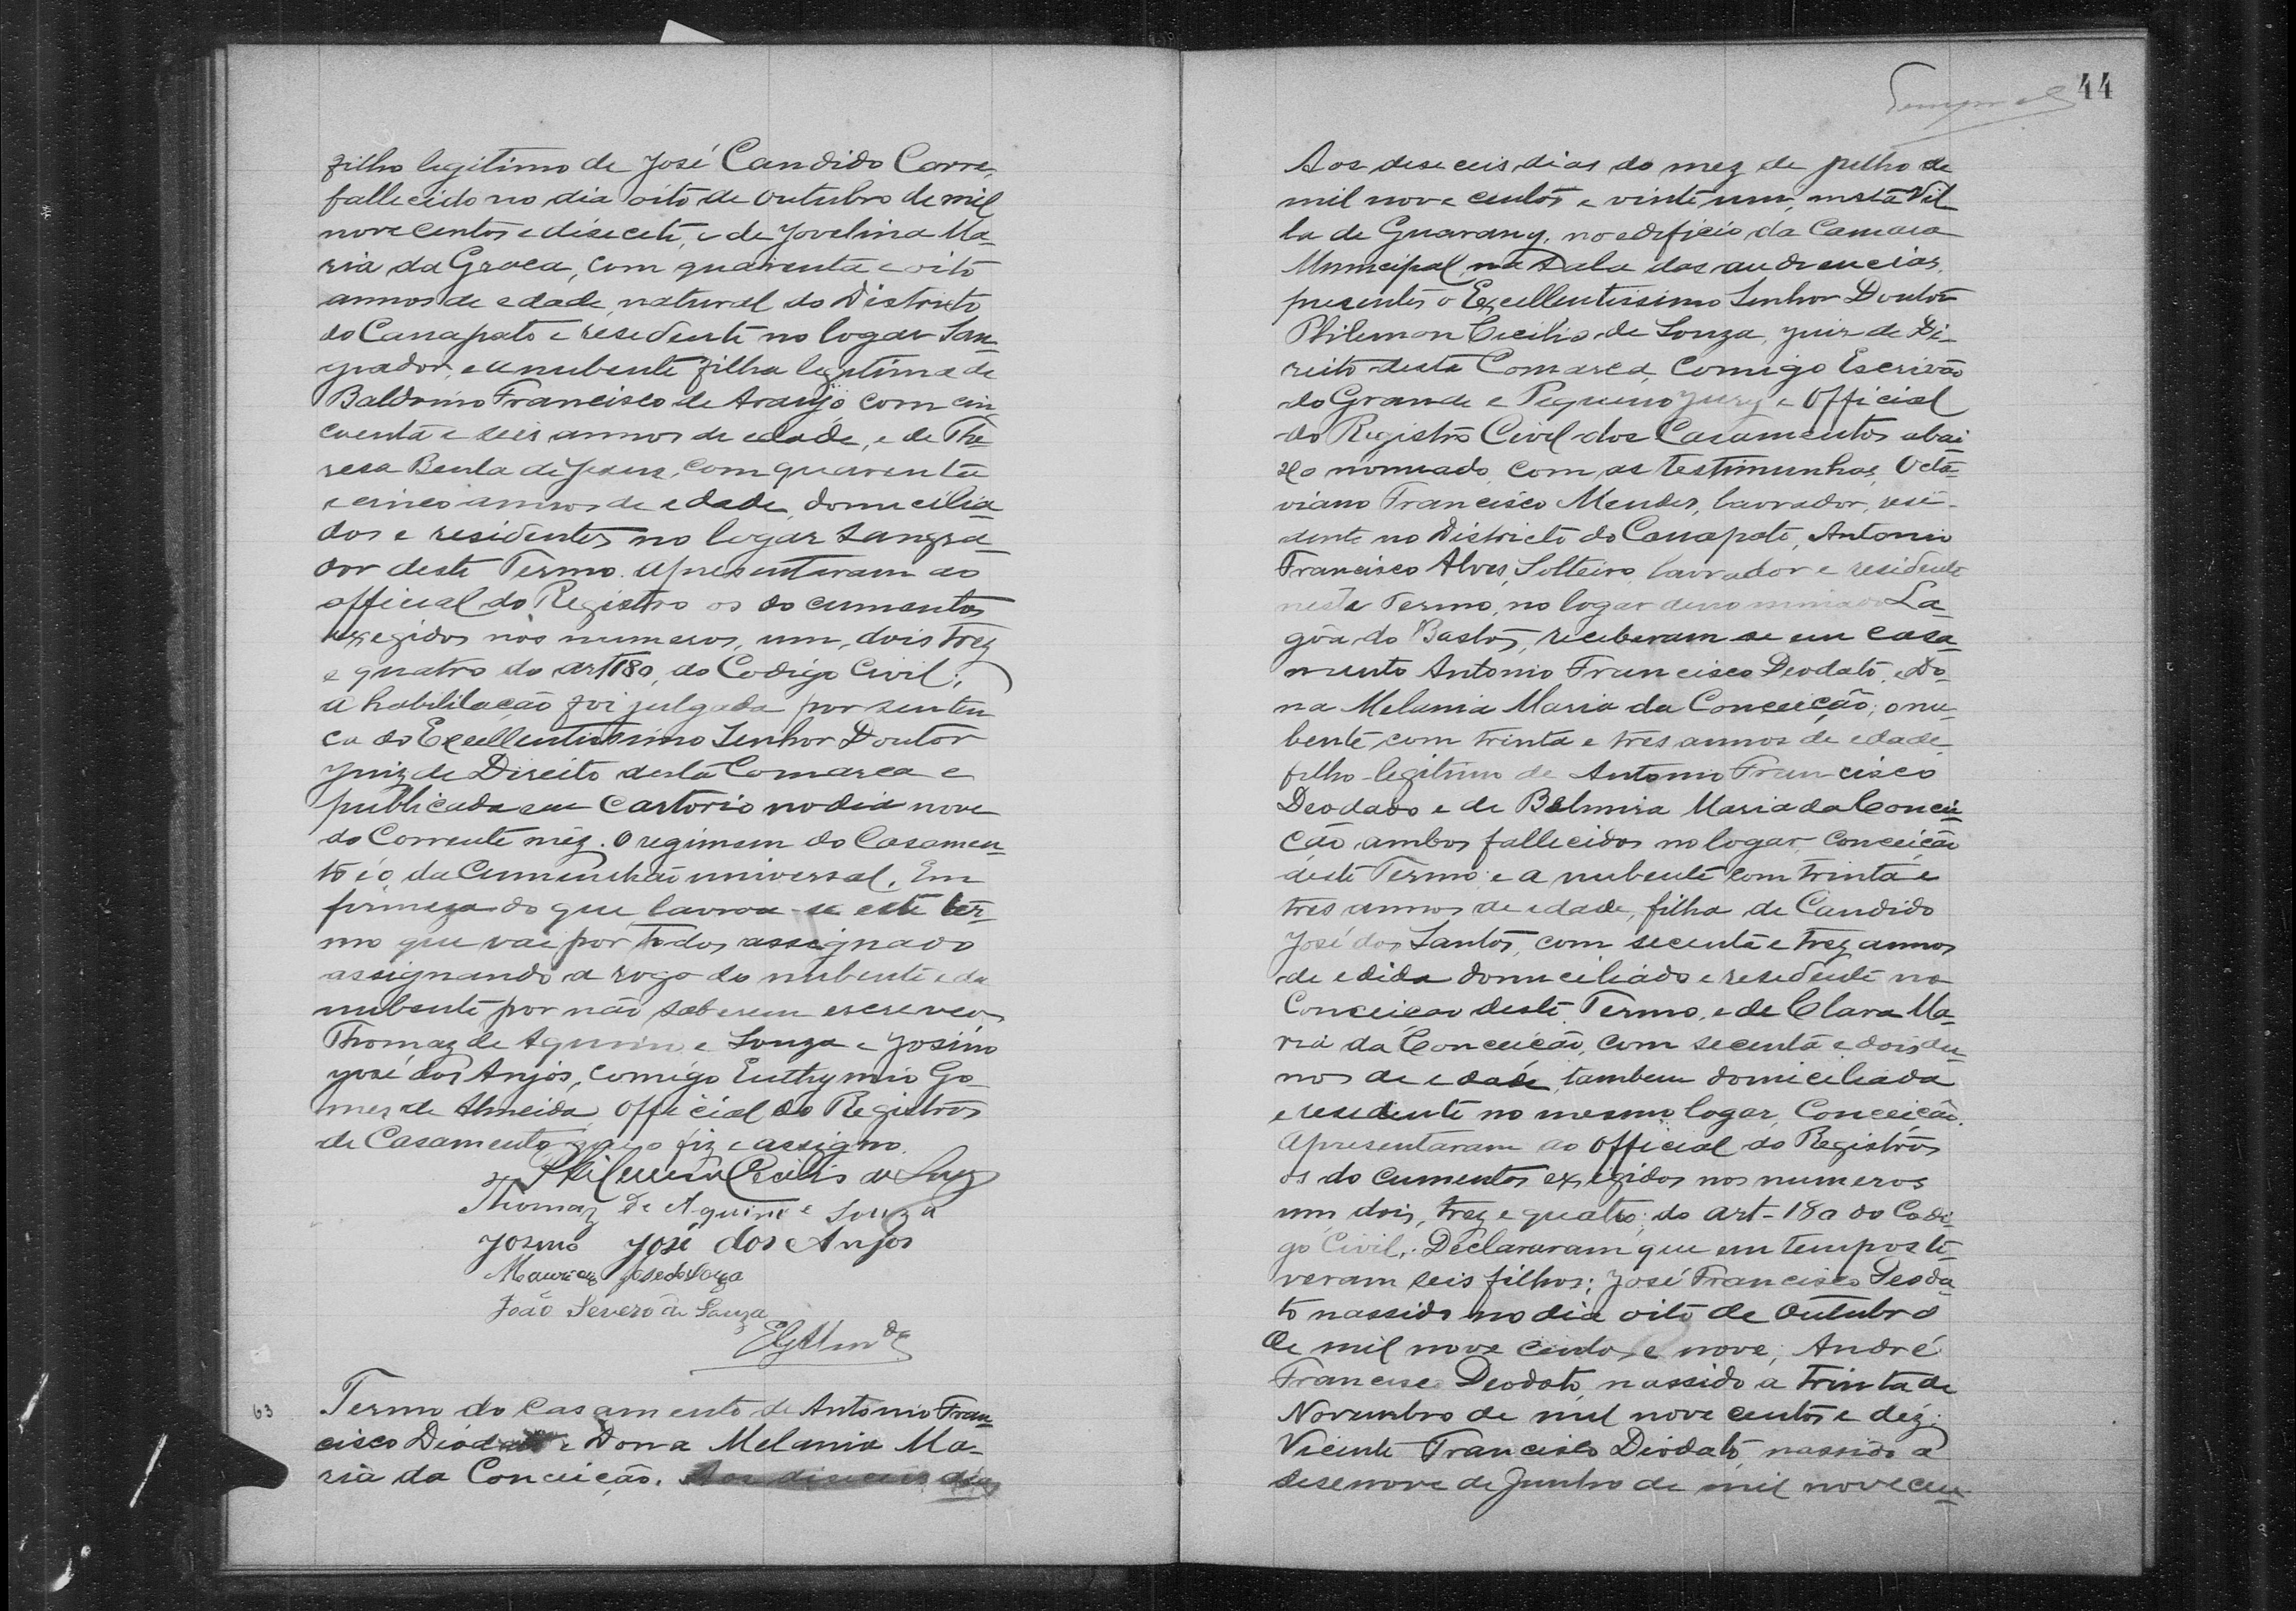 filho legitimo de José Candido Corre,
fallecido no dia oito de Outubro de mil
nove centos e disecete, e de Jovelina Ma-
ria da Graca, com quarenta e oito
annos de edade, natural do Districto
do Canapato e residente no logar San-
grador, e a nubente filha legitima de
Baldoino Francisco de Araujo com cin-
coenta e seis annos de edade, e de The-
resa Benta de Jesus, com quarenta
e cinco annos de edade, domicilia-
dos e residentes no logar Sangra-
dor deste Termo. Apresentaram ao
official do Registro os documentos
exegidos nos numeros, um, dois trez
e quatro do art 180, do Codigo Civil;
a habilitação foi julgada por senten
ca do Excellentissimo Senhor Doutor
Juiz de Direito desta Comarca e
publicada em Cartorio no dia nove
do Corrente mêz. O regimem do Casamen-
to é o da Cumunhão universal. Em
firmeza do que lavrou-se este ter-
mo que vai por todos assignado
assignando a rogo do nubente e da
nubente por não saberem escrever
Thomaz de Aquino e Souza e Josino
José dos Anjos, comigo Euthymio Go-
mes de Almeida, Official do Registros
de Casamento que o fiz e assigno.
Philemon Cecilio de Souza
Thomaz de Aquino e Souza
Josino José dos Anjos
José de Souza
João Severo de Souza
63 Termo do Casamento de Antonio Fran-
cisco Deodato e Dona Melania Ma-
ria da Conceição. Aos diseceis dias
44
Aos dese ceis dias do mez de julho de
mil nove centos e vinte um, nesta Vil
la de Guarany, no edificio da Camara
Municipal, na Sala das audiencias,
presentes o Excellentissimo Senhor Doutor
Philemon Cecilio de Souza, juiz de Di-
reito desta Comarca, Comigo Escrivão
do Grande e Pequeno Jury e Official
do Registro Civil dos Casamentos abai
xo nomeado, com as testimunhas, Octa-
viano Francisco Mendes, lavrador, rese-
dente no Districto do Canapato, Antonio
Francisco Alves, Solteiro, lavrador e residente
neste Termo, no logar denominado La
gôa do Bastos, receberam-se em casa-
mento Antonio Francisco Deodato, e Do-
na Melania Maria da Conceição; o nu-
bente com trinta e tres annos de edade,
filho legitimo de Antonio Francisco
Deodado e de Belmira Maria da Concei-
ção, ambos fallecidos no logar Conceição
deste Termo; e a nubente com trinta e
tres annos de edade, filha de Candido
José dos Santos, com secenta e trez annos
de edida domiciliado e residente na
Conceiçao deste Termo, e de Clara Ma-
ria da Conceição, com secenta e dois an-
nos de edade, tambem domiciliada
e residente no mesmo logar, Conceição.
Apresentaram ao official do Registros
os documentos exegidos nos numeros
um, dois, trez e quatro; do art-180 do Codi-
go Civil,. Declararam que em tempos ti-
veram seis filhos; José Francisco Deoda-
to nassido no dia oito de Outubro
de mil nove centos e nove, André
Francisco Deodato, nassido a trinta de
Novembro de mil nove centos e déz;
Vicente Francisco Deodato, nassido a
desenove de Junho de mil nove cen-